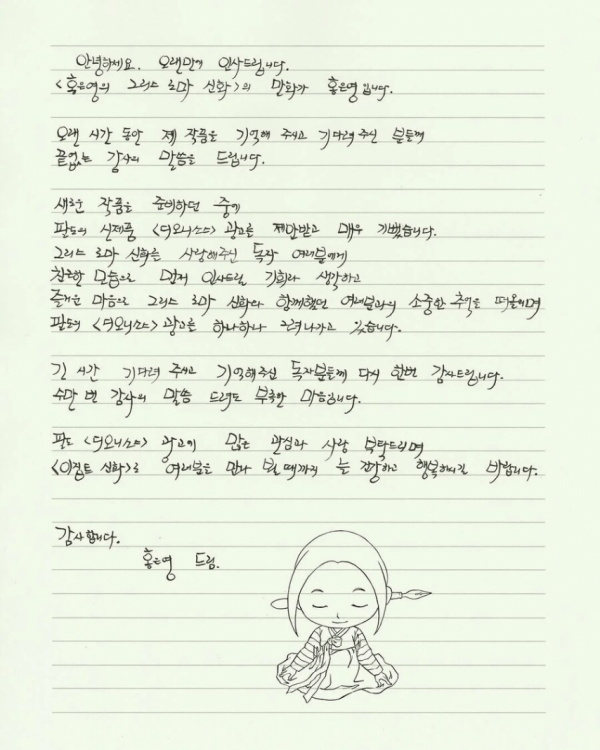 안녕하세요. 오랜만에 인사드립니다.
<홍은영의 그리스 로마 신화>의 만화가 홍은영입니다.
오랜 시간 동안 제 작품을 기억해 주시고 기다려 주신 분들께
끝없는 감사의 말씀을 드립니다.
새로운 작품을 준비하던 중에
팔도의 신제품 <디오니소스> 광고를 제안받고 매우 기뻤습니다.
그리스 로마 신화를 사랑해주신 독자 여러분에게
친근한 모습으로 먼저 인사드릴 기회라 생각하고
즐거운 마음으로 그리스 로마 신화와 함께했던 여러분과의 소중한 추억을 떠올이며
팔도의 <디오니소스> 광고를 하나하나 그려나가고 있습니다.
긴 시간 기다려 주시고 기억해주신 독자분들께 다시 한번 감사드립니다.
수만 번 감사의 말씀 드려도 부족한 마음입니다.
팔도 <디오니소스> 광고에 많은 관심과 사랑 부탁드리며
<이집트 신화>로 여러분을 만나 뵐 때까지 늘 건강하고 행복하시길 바랍니다.
감사합니다.
홍은영 드림.